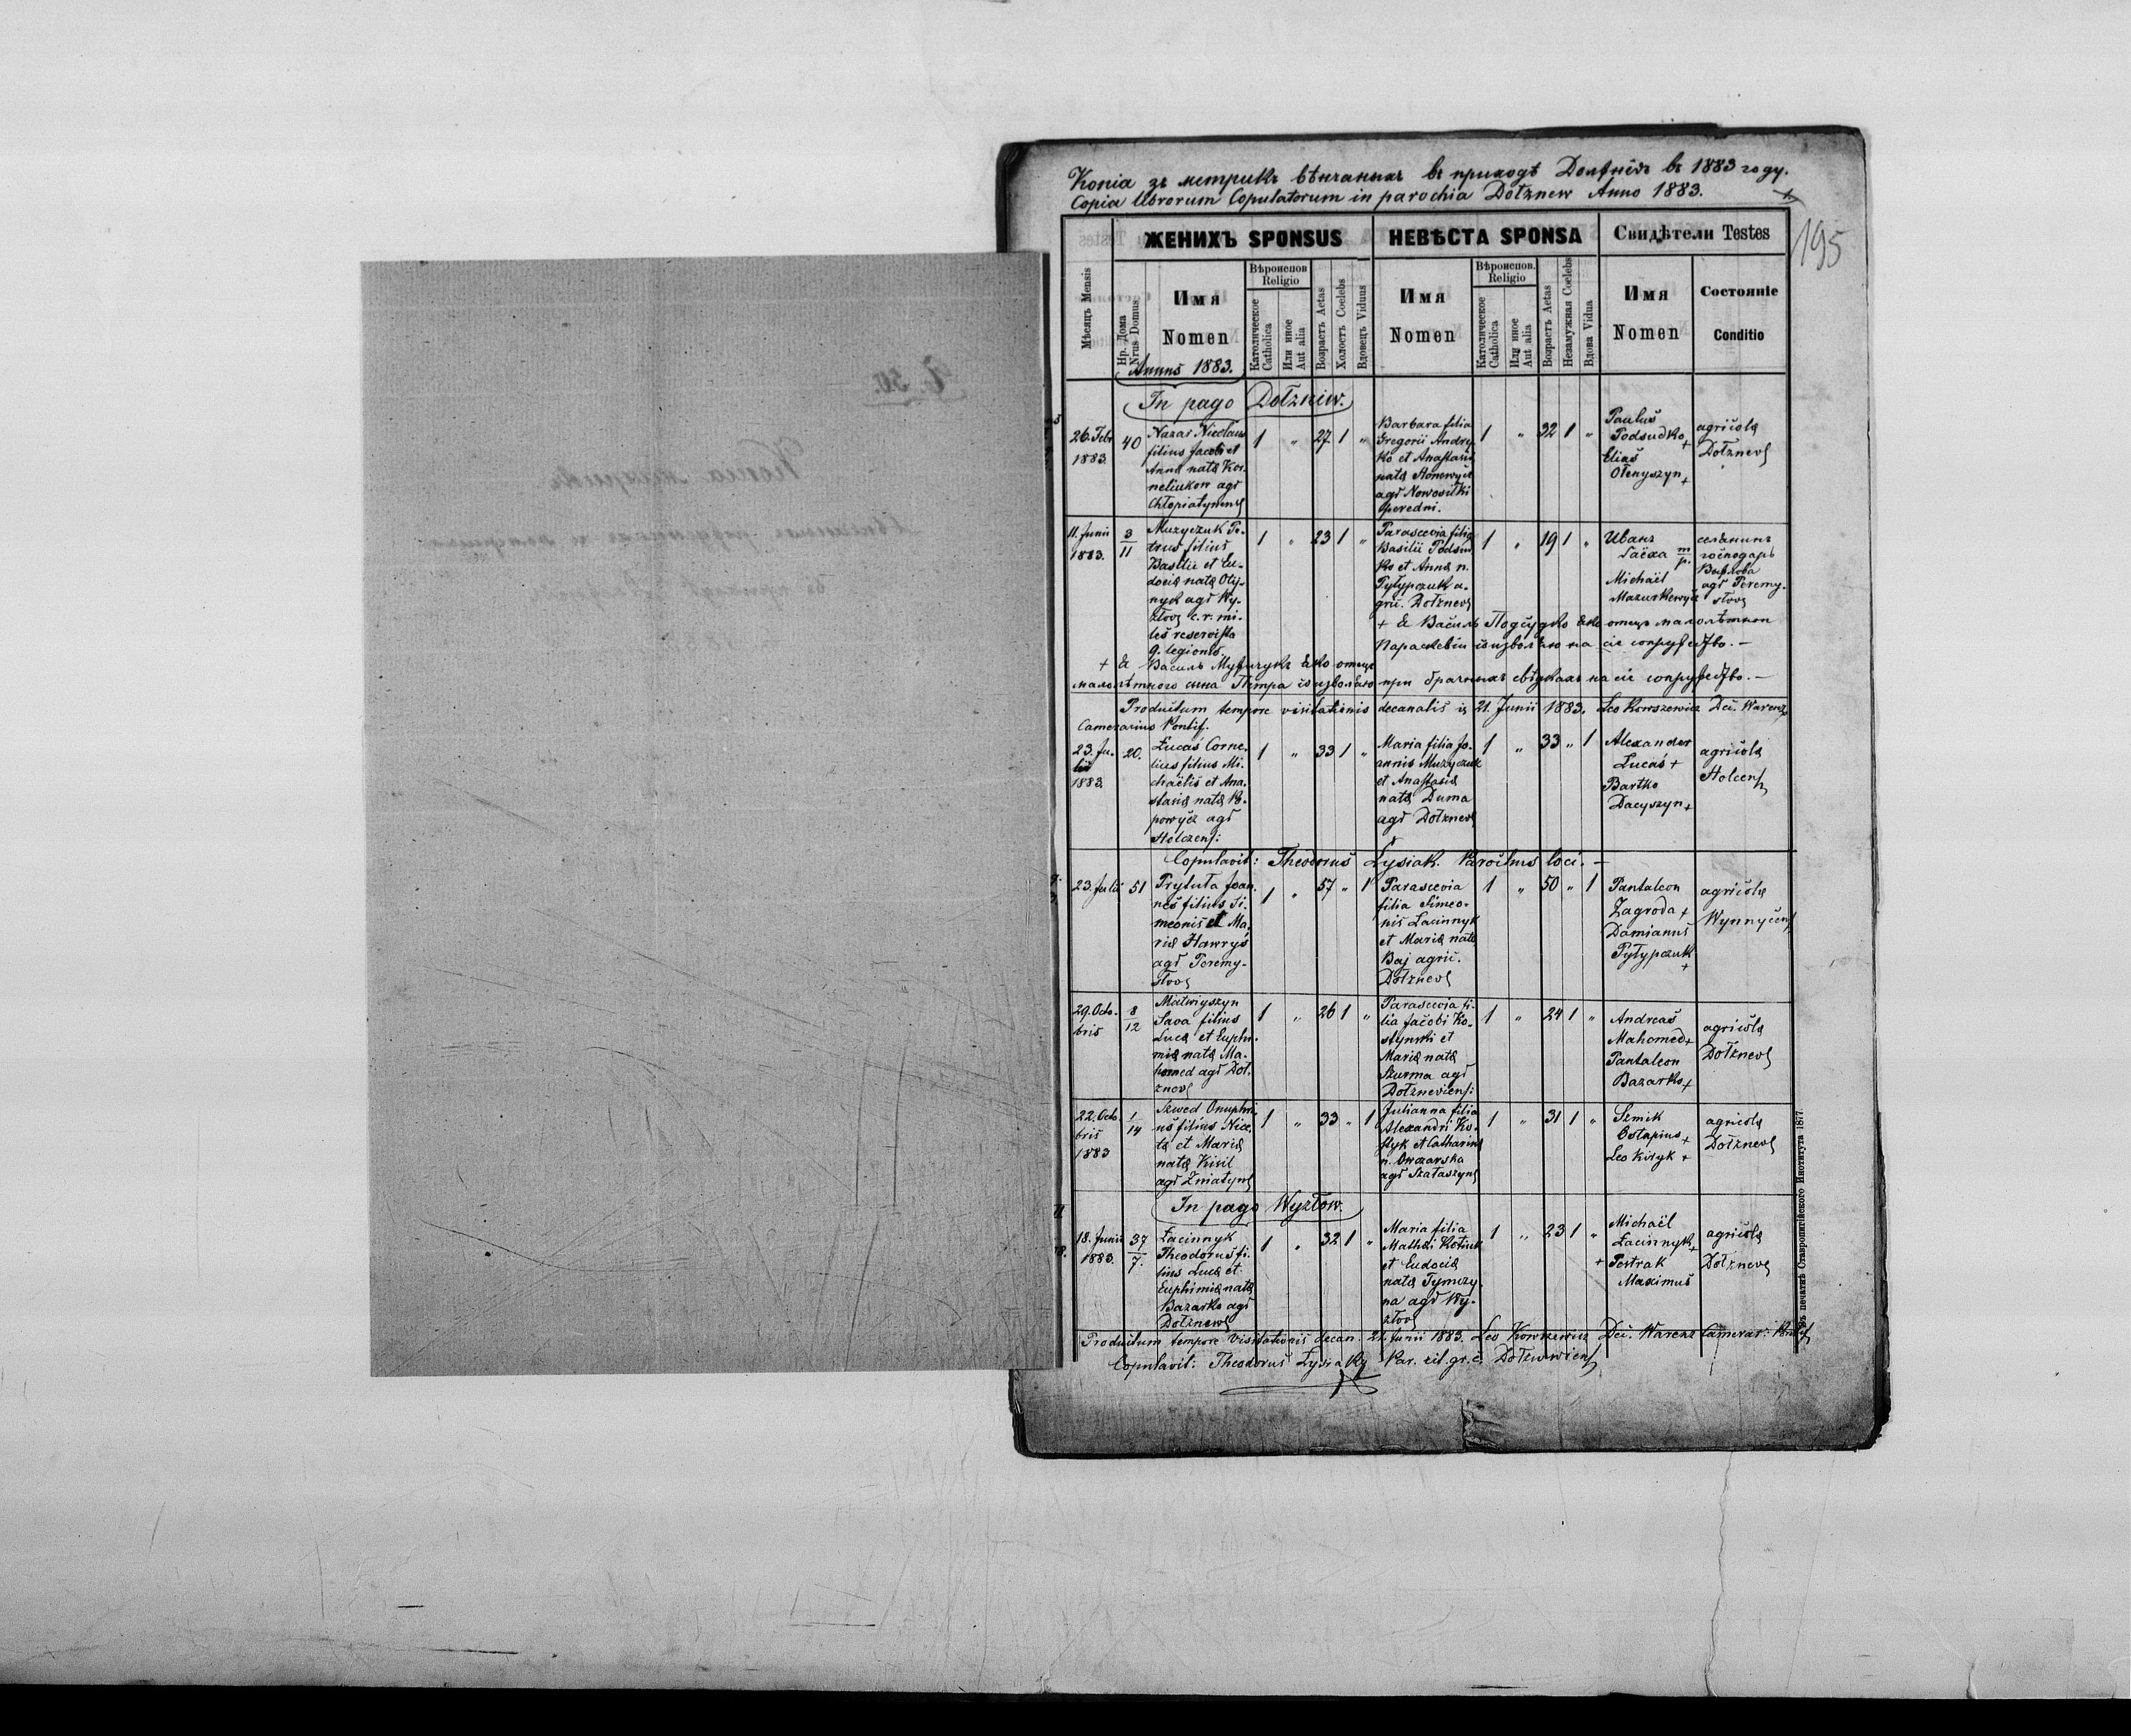 Копіа зъ метрикъ вѣнчаныхъ въ приходѣ Должнёвъ въ 1883 году.
Copia Librorum Copulatorum in parochia Dołznew Anno 1883.
195
ЖЕНИХЪ SPONSUS НЕВѢСТА SPONSA Свидѣтели Testes
Мѣсяцъ Mensis
Нр. Дома Nrus Domus
Имя Nomen
Вѣроиспов Religio
Католическое Catholica
Или иное Aut alia
Возрастъ Aetas
Холостъ Coelebs
Вдовецъ Viduus
Имя Nomen
Вѣроиспов. Religio
Католическое Catholica
Или иное Aut alia
Возрастъ Aetas
Незамужная Coelebs
Вдова Vidua
Имя Nomen
Состояніе Conditio
Annus 1883.
In pago Dołzniw.
26. Febr
1883.
40
Nazar Nicolaus
filius Jacobi et
Anna nata Kor-
neliukow agr
Chłopiatynens
1 " 27 1 "
Barbara filia
Gregorii Andry-
ko et Anastasia
nata
agr Nowosiłki
Peredni.
1 " 32 1 "
Paulus
Podsudko +
Elias
Ołenyszyn +
agricola
Dołznevs
11. Junii
1883.
3/11
Muzyczuk Pe-
trus filius
Basilii et Eu-
docia nata Oly-
nyk agr Wy-
złov c. r. mi-
les reservista
9. legionis
1 " 23 1 "
Parascevia filia
Basilii Podsud
ko et Anna n.
Pyłypczuk a-
gric. Dołznevs
1 " 19 1 "
Иванъ
Гаёха m/p.
Michaël
Mazurkewycz
селянинъ
господарь
Вызлова
agr Peremy-
słov
+ Я Василь Подсудко яко отецъ малолѣтнои
Параскевіи соизволяю на сіе сопружество. -
+ Я Василь Музычукъ яко отецъ
малолѣтного сына Петра соизволяю при брачныхъ свѣдкахъ на сіе сопружество. -
Productum tempore visitationis decanalis is 21. Junii 1883. Leo Kowszewicz Dec. Warenz
Camerarius Pontif.
23. Ju-
lii
1883.
20.
Łucas Corne-
lius filius Mi-
chaëlis et Ana-
stasia nata Po-
powycz agr
Hołczens:
1 " 33 1 "
Maria filia Jo-
annis Muzyczuk
et Anastasia
nata Duma
agr Dołznevs
1 " 33 " 1
Alexander
Łucas +
Bartko
Dacyszyn +
agricola
Holcens
Copulavit: Theodorus Łysiak. Parochus loci. -
23. Julii
51
Prytuła Joan-
nes filius Si-
meonis et Ma-
ria Hawryś
agr Peremy-
słov
1 " 57 " 1
Parascevia
filia Simeo-
nis Łacinnyk
et Maria nata
Baj agric.
Dołznevs
1 " 50 " 1
Pantaleon
Zagroda +
Damianus
Pyłypczuk
+
agricola
Wynnyčens
29. Octo-
bris
8/12
Matwiyszyn
Sava filius
Luca et Euphi-
mia nata Ma-
homed agr Doł-
znevs
1 " 26 1 "
Parascevia fi-
lia Jacobi Ko-
stynski et
Maria nata
Szurma agr
Dołzneviens:
1 " 24 1 "
Andreas
Mahomed +
Pantaleon
Bazarko +
agricola
Dołznevs
22. Octo
bris
1883
1/14
Szwed Onuphri-
us filius Nice-
ta et Maria
nata Kisil
agr Zniatyns
1 " 33 " 1
Julianna filia
Alexandri Ko-
styk et Catharina
n. Owczarska
agr Szataszyns
1 " 31 1 "
Semik
Ostapius +
Leo Kiryk +
agricola
Dołznevs
In pago Wyzłow.
18. Junii
1883.
37/7.
Łacinnyk
Theodorus fi-
lius Luca et
Euphimia nata
Bazarko agr
Dołznevs
1 " 32 1 "
Maria filia
Mathei Kotiuk
et Eudocia
nata Tymczy-
na agr Wy-
złov
1 " 23 1 "
Michaël
Łacinnyk +
+ Pestrak
Maximus
agricola
Dołznevs
Productum tempore visitationis decan. 21. Junii 1883. Leo Kowszewicz Dec. Warenz Camerar: Pontif
Copulavit: Theodorus Łysiak Par. rit. gr. c. Dołzneviens
Въ печатнѣ Ставропигійского Института 1877.